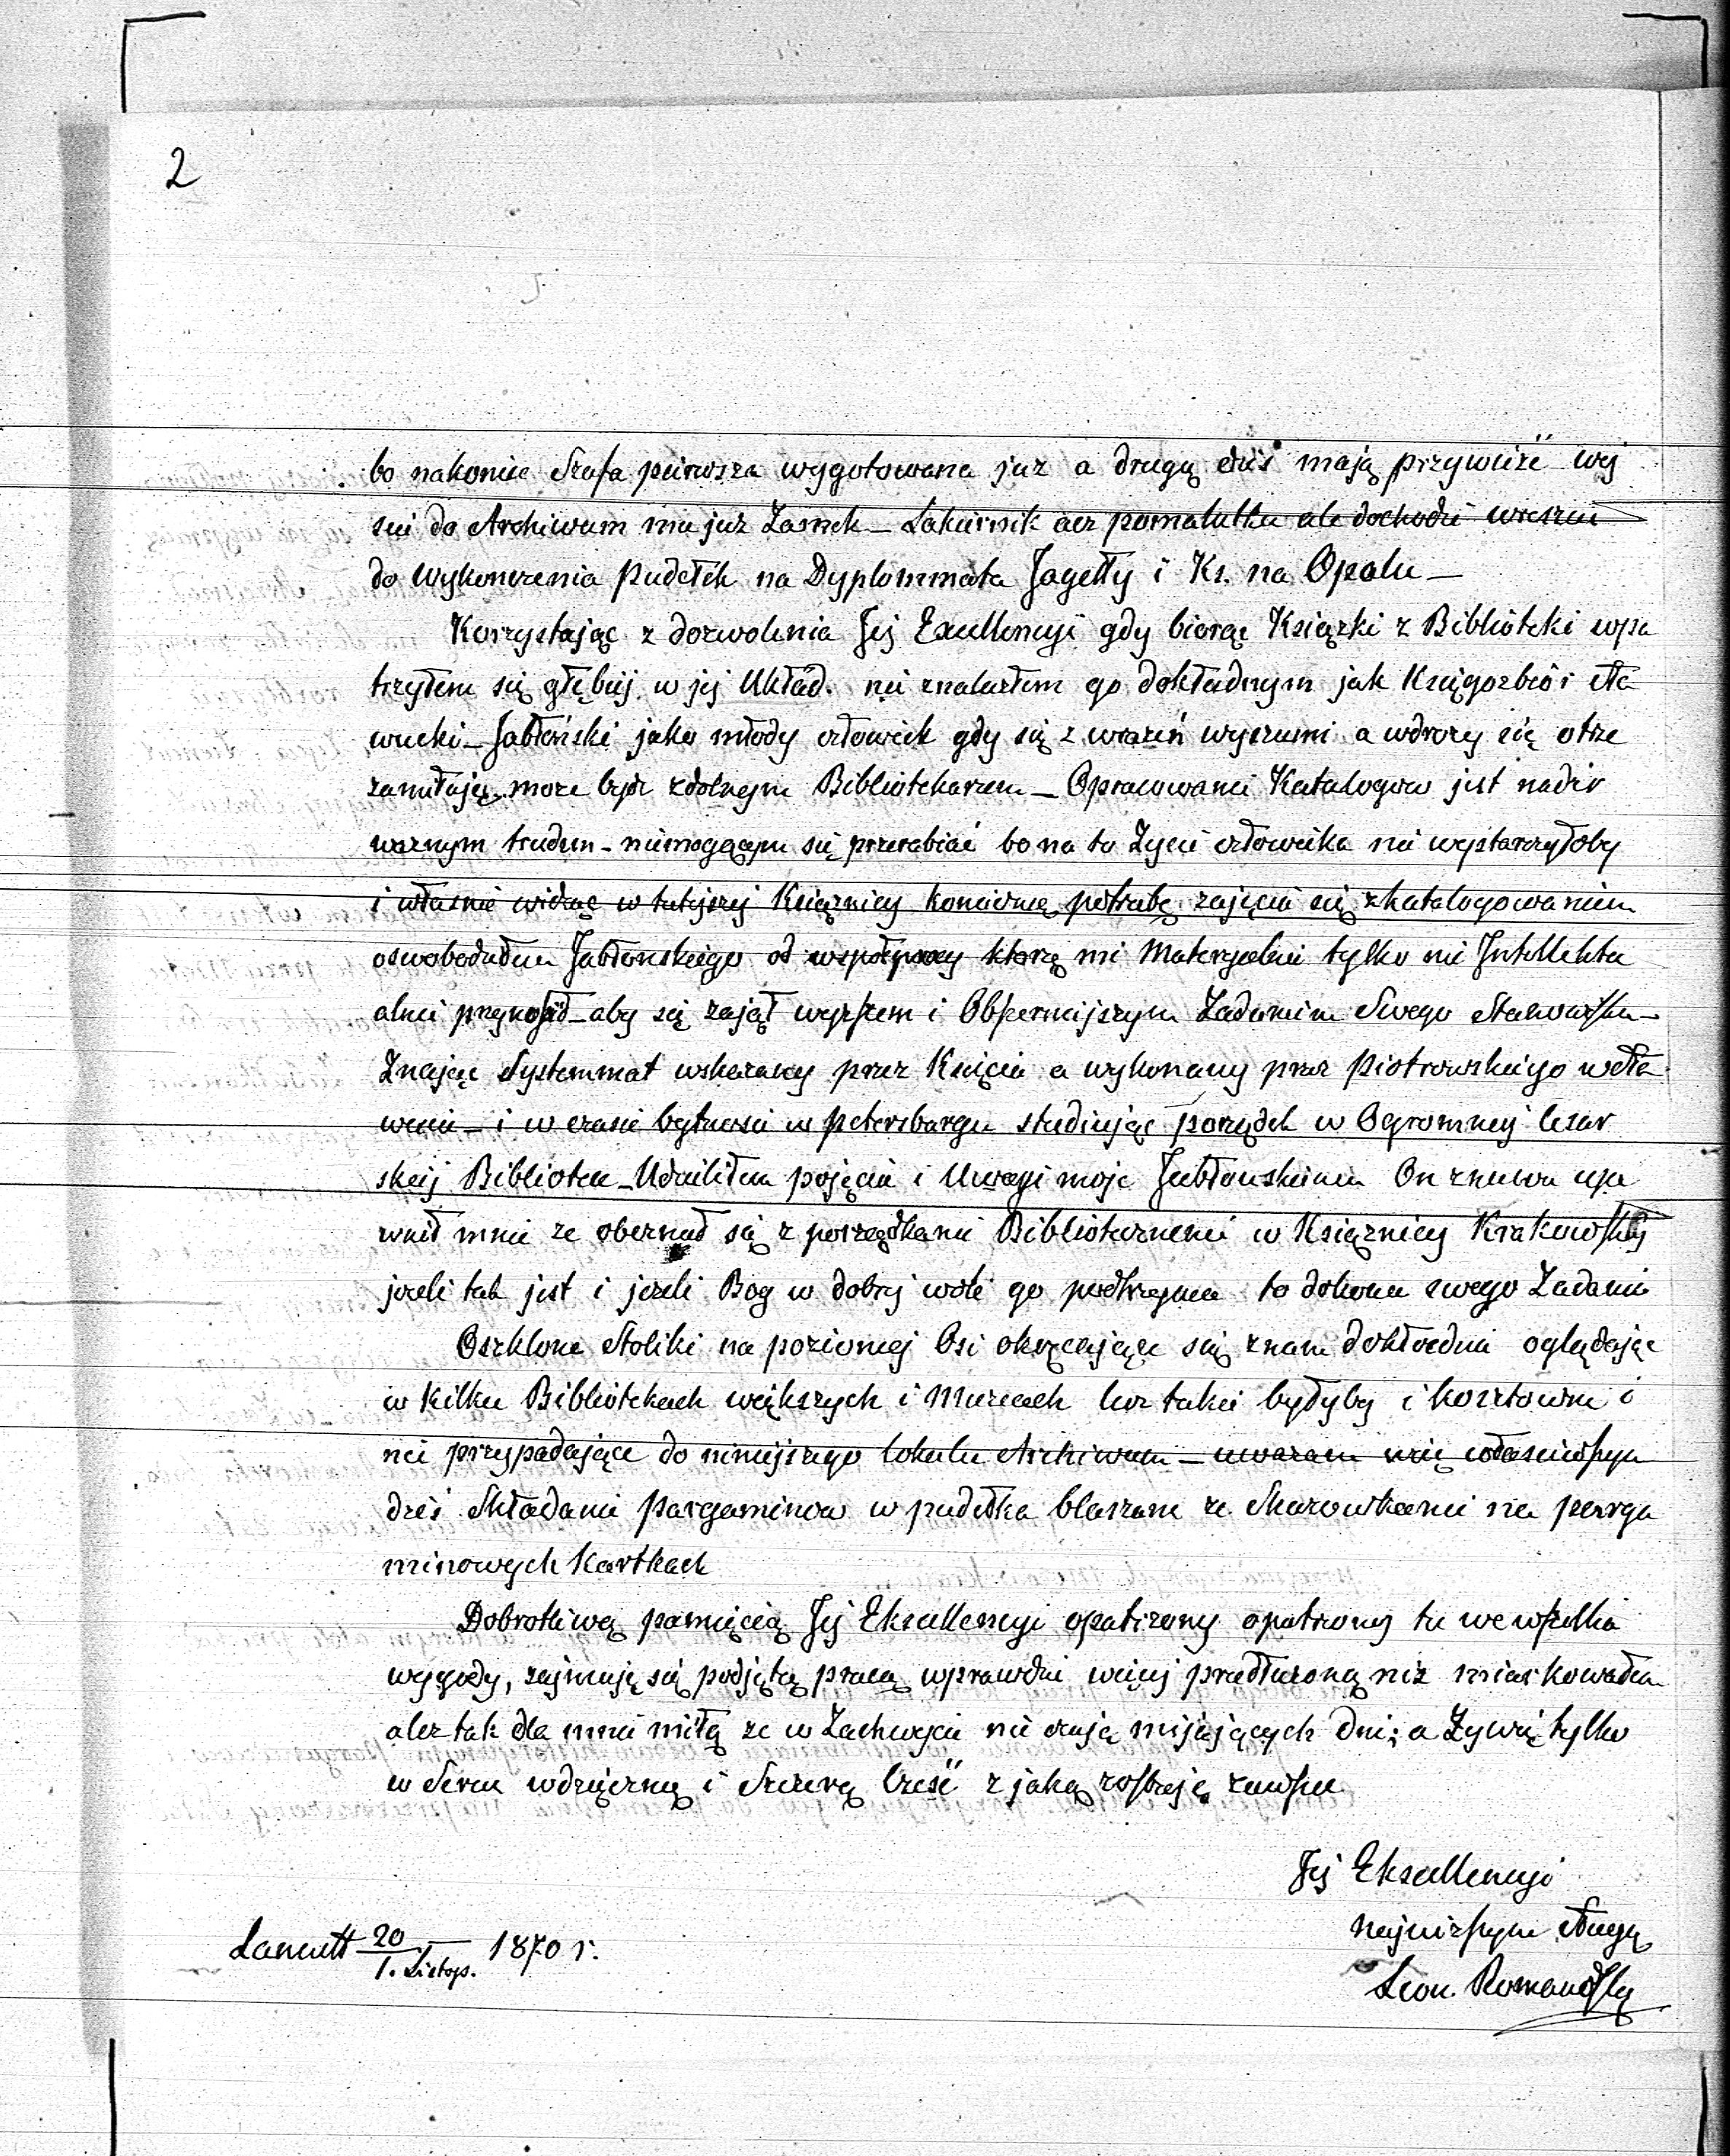 2
bo nakoniec Szafa pierwsza wygotowana juz a drugą dziś mają przywieźć wej
sci do Archiwum ma juz Zamek – Lakiernik acz pomalutku ale dochodzi wreszcie
do Wykonczenia Pudełek na Dyplommata Jagełły i Ks. na Opolu –
Korzystając z dozwolenia Jej Exellencyi gdy biorąc Książki z Biblioteki wpa
trzyłem się głębiej w jej Układ. nie znalazłem go dokładnym jak Księgozbiór Sła
wucki – Jabłoński jako młody człowiek gdy się z wrazeń wyszumi a wdrozy się otrze
zamiłując moze być zdolnym Bibliotekarzem – Opracowanie Katalogow jest nader
waznym trudem – niemogącym się przerabiać bo na to Zycie człowieka nie wystarczyłoby
i własnie widząc w tutejszej Książnicy konieczną potrzebę zajęcia się zkatalogowaniem
oswobodziłem Jabłonskiego od współpracy którą mi Materyalnie tylko nie Intellektu
alnie przynosił – aby się zajął wyższem i Obszerniejszym Zadaniem Swego Stanowiska –
Znając Systemmat wskazany przez Księcia a wykonany przez Piotrowskiego w Sła
wucie – i w czasie bytnosci w Petersburgu studiując porządek w Ogromnej Cesar
skiej Bibliotece – Udzieliłem pojęcia i Uwagi moje Jabłonskiemu On znowu upe
wnił mnie ze obeznał się z porządkami Bibliotecznemi w Książnicy Krakowskiej
jezeli tak jest i jezeli Bog w dobrej woli go podtrzyma to dokona swego Zadania
Oszklone Stoliki na poziomej Osi okręcające się znam dokładnie oglądając
w Kilku Bibliotekach większych i Muzeach lecz takie byłyby i kosztowne i
nie przypadające do niniejszego lokalu Archiwum – uwazam więc właściwszym
dziś Składanie Pargaminow w pudełka blaszane ze Skazowkami na perga
minowych Kartkach
Dobrotliwą pamięcią Jej Eksellencyi opatrzony opatrzony tu we wszelkie
wygody, zajmuję się podjętą pracą wprawdzie więcej przedłuzoną niz miarkowałem
alez tak dla mnie miłą ze w Zachwycie nie czuję mijających dni; a Zywię tylko
w Sercu wdzięczną i Szczerą Cześć z jaką zostaję zawsze
Jej Eksellencyi
najnizszym Sługą
Leon. Romanowski
Lancutt 20/1. Listop. 1870 r.